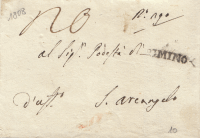 1808
al Sig.r Podestà di RIMINO
d'uff.o S. Arcangelo
10